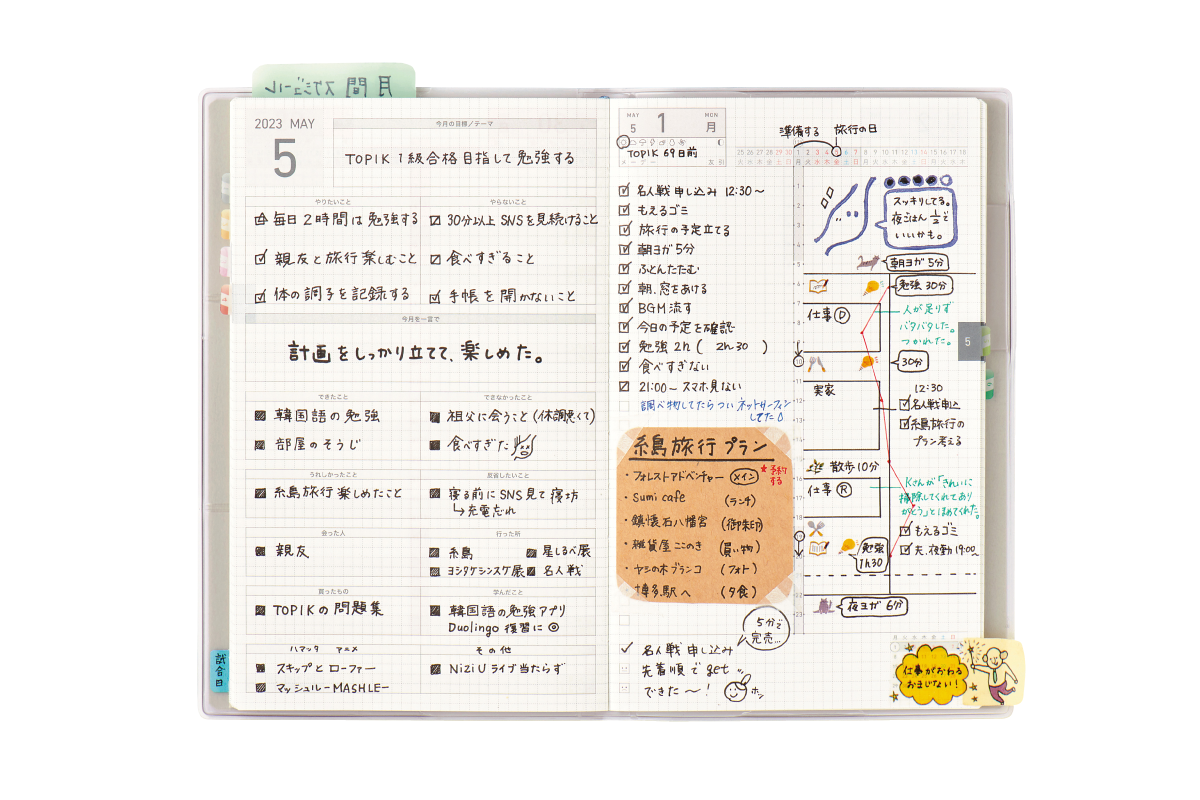 月間スケジュール
2023 MAY
5
今月の目標/テーマ
TOPIK 1級合格目指して勉強する
やりたいこと
やらないこと
毎日2時間は勉強する
30分以上SNSを見続けること
親友と旅行楽しむこと
食べすぎること
体の調子を記録する
手帳を開かないこと
今月を一言で
計画をしっかり立てて、楽しめた。
できたこと
できなかったこと
韓国語の勉強
祖父に会うこと(体調悪くて)
部屋のそうじ
食べすぎた
うれしかったこと
反省したいこと
糸島旅行楽しめたこと
寝る前にSNS見て寝坊
→充電忘れ
会った人
行った所
親友
糸島
星しるべ展
ヨシタケシンスケ展
名人戦
買ったもの
学んだこと
TOPIKの問題集
韓国語の勉強アプリ
Duolingo 復習に◎
ハマッタ アニメ
その他
スキップとローファー
NiziUライブ当たらず
マッシュル-MASHLE-
試合日
MAY
5
1
MON
月
友引
TOPIK 69日前
準備する
旅行の日
25 26 27 28 29 30 1 2 3 4 5 6 7 8 9 10 11 12 13 14 15 16 17 18
火 水 木 金 土 日 月 火 水 木 金 土 日 月 火 水 木 金 土 日 月 火 水 木
名人戦申し込み 12:30〜
もえるゴミ
旅行の予定立てる
朝ヨガ5分
ふとんたたむ
朝、窓をあける
BGM流す
今日の予定を確認
勉強2h( 2h30 )
食べすぎない
21:00〜スマホ見ない
調べ物してたらついネットサーフィン
してた
糸島旅行プラン
・フォレストアドベンチャー (メイン)
*予約
する
・Sumi cafe (ランチ)
・鎮懐石八幡宮 (御朱印)
・雑貨屋ここのき (買い物)
・ヤシの木ブランコ (フォト)
・博多駅へ (夕食)
5分で
完売…
名人戦申し込み
先着順でget
できた〜!
ホッ
スッキリしてる。
夜ごはん1/2で
いいかも。
朝ヨガ5分
勉強30分
仕事Ⓓ
人が足りず
バタバタした。
つかれた。
5
30分
実家
12:30
名人戦申込
糸島旅行の
プラン考える
散歩10分
仕事Ⓡ
Kさんが「きれいに
掃除してくれてあり
がとう」とほめてくれた。
もえるゴミ
夫、夜勤19:00〜
勉強
1h30
夜ヨガ6分
月 火 水 木 金 土 日
仕事がおわる
おまじない!